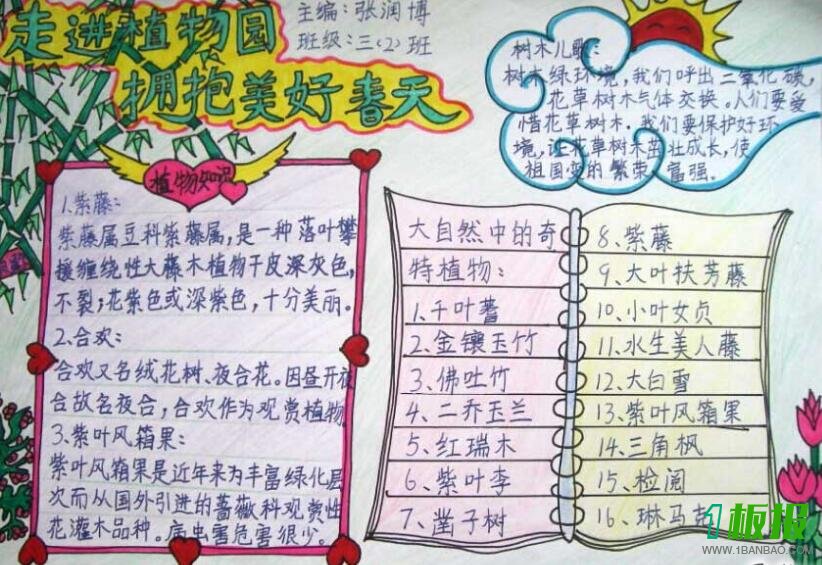 走进植物园
主编:张润博
班级:三(2)班
拥抱美好春天
树木儿歌:
树木绿环境,我们呼出二氧化碳,
花草树木气体交换。人们要爱
惜花草树木.我们要保护好环
境,让花草树木茁壮成长,使
祖国变的繁荣、富强。
植物知识
1.紫藤:
紫藤属豆科紫藤属,是一种落叶攀
援缠绕性大藤木植物干皮深灰色,
不裂;花紫色或深紫色,十分美丽。
2.合欢:
合欢又名绒花树、夜合花。因昼开夜
合故名夜合,合欢作为观赏植物
3.紫叶风箱果:
紫叶风箱果是近年来为丰富绿化层
次而从国外引进的蔷薇科观赏性
花灌木品种。病虫害危害很少。
大自然中的奇
特植物:
1.千叶蓍
2.金镶玉竹
3.佛吐竹
4.二乔玉兰
5、红瑞木
6、紫叶李
7、凿子树
8、紫藤
9、大叶扶芳藤
10、小叶女贞
11、水生美人藤
12、大白雪
13、紫叶风箱果
14、三角枫
15、检阅
16、琳马克
1板报
WWW.1BANBAO.COM